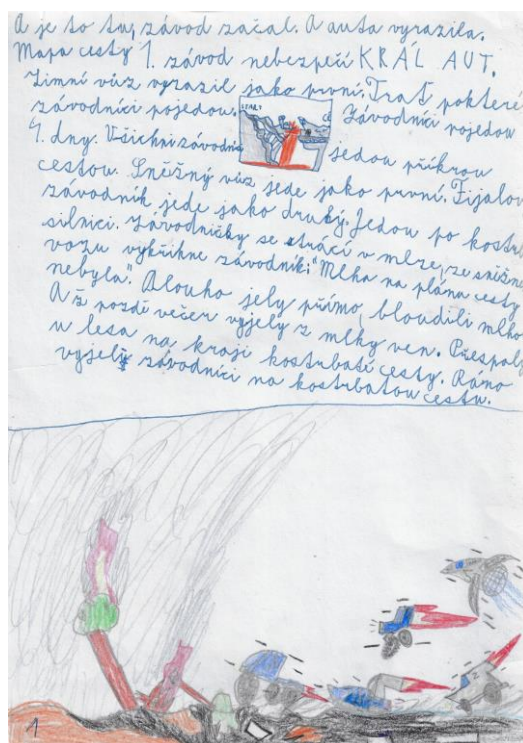 A je to tu, závod začal. A auta vyrazila.
Mapa cesty 1. závod nebezpečí KRÁL AUT.
Zimní vůz vyrazil jako první. Trať pokteré
závodníci pojedou. START Závodníci pojedou
4. dny. Všichni závodníci jedou příkrou
cestou. Sněžný vůz jede jako první. Fijalov
závodník jede jako druhý. Jedou po kostrb
silnici. Závodničky se strácí v mlze, ze sněžné
vozu vykřikne závodník: "Mlha na plánu cesty
nebyla". Dlouho jely přímo, bloudili mlhou
Až pozdě večer vyjely z mlhy ven. Přespaly
u lesa na kraji kostrbaté cesty. Ráno
vyjely závodníci na kostrbatou cestu.
1